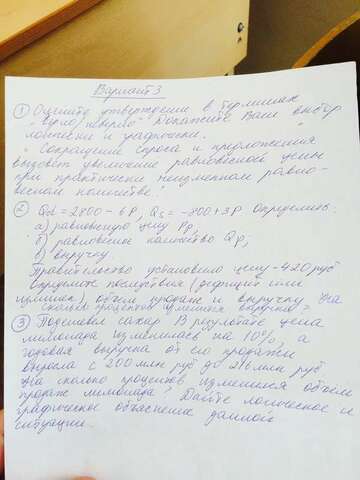 Вариант 3
① Оцените утверждение в терминах
"верно/неверно". Докажите Ваш выбор
логически и графически.
"Сокращение спроса и предложения
вызовет увеличение равновесной цены
при практически неизменном равно-
весном количестве".
② Qd = 2800 - 6P, Qs = -800 + 3P Определить:
а) равновесную цену Pp,
б) равновесное количество Qp,
в) выручку.
Правительство установило цену - 420 руб
Определить последствия (дефицит или
излишек), объем продаж и выручку. На
сколько процентов изменится выручка?
③ Подешевел сахар. В результате цена
лимонада изменилась на 10%, а
годовая выручка от его продажи
выросла с 200 млн руб до 216 млн руб.
На сколько процентов изменился объем
продаж лимонада? Дайте логическое и
графическое объяснение данной
ситуации.